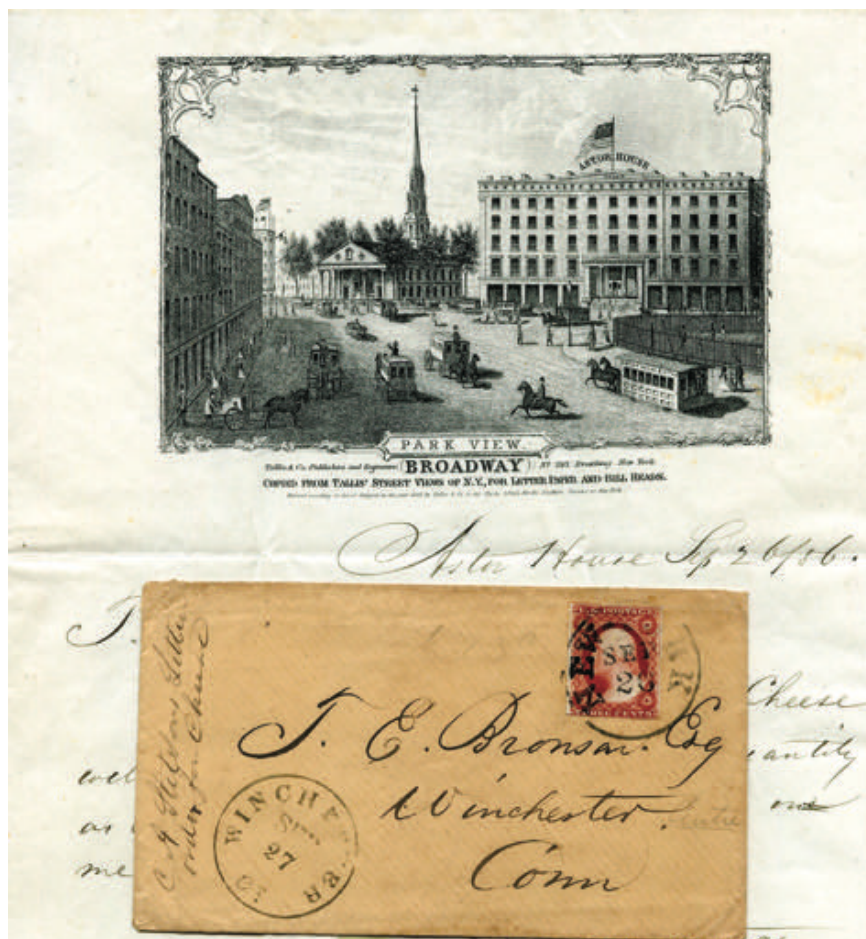 ASTOR HOUSE
PARK VIEW.
Tallis & Co. Publishers and Engravers (BROADWAY) Broadway New York
COPIED FROM TALLIS' STREET VIEWS OF N.Y., FOR LETTER PAPER AND BILL HEADS.
Astor House Sep 26/56.
T.
Cheese
antity
as
me
C A Stetson's Letter
order for Cheese
U.S. POSTAGE
THREE CENTS
NEW RK
SEP
26
T. E. Bronson. Esq
Winchester. Centre
Conn
WINCHESTER CT
27